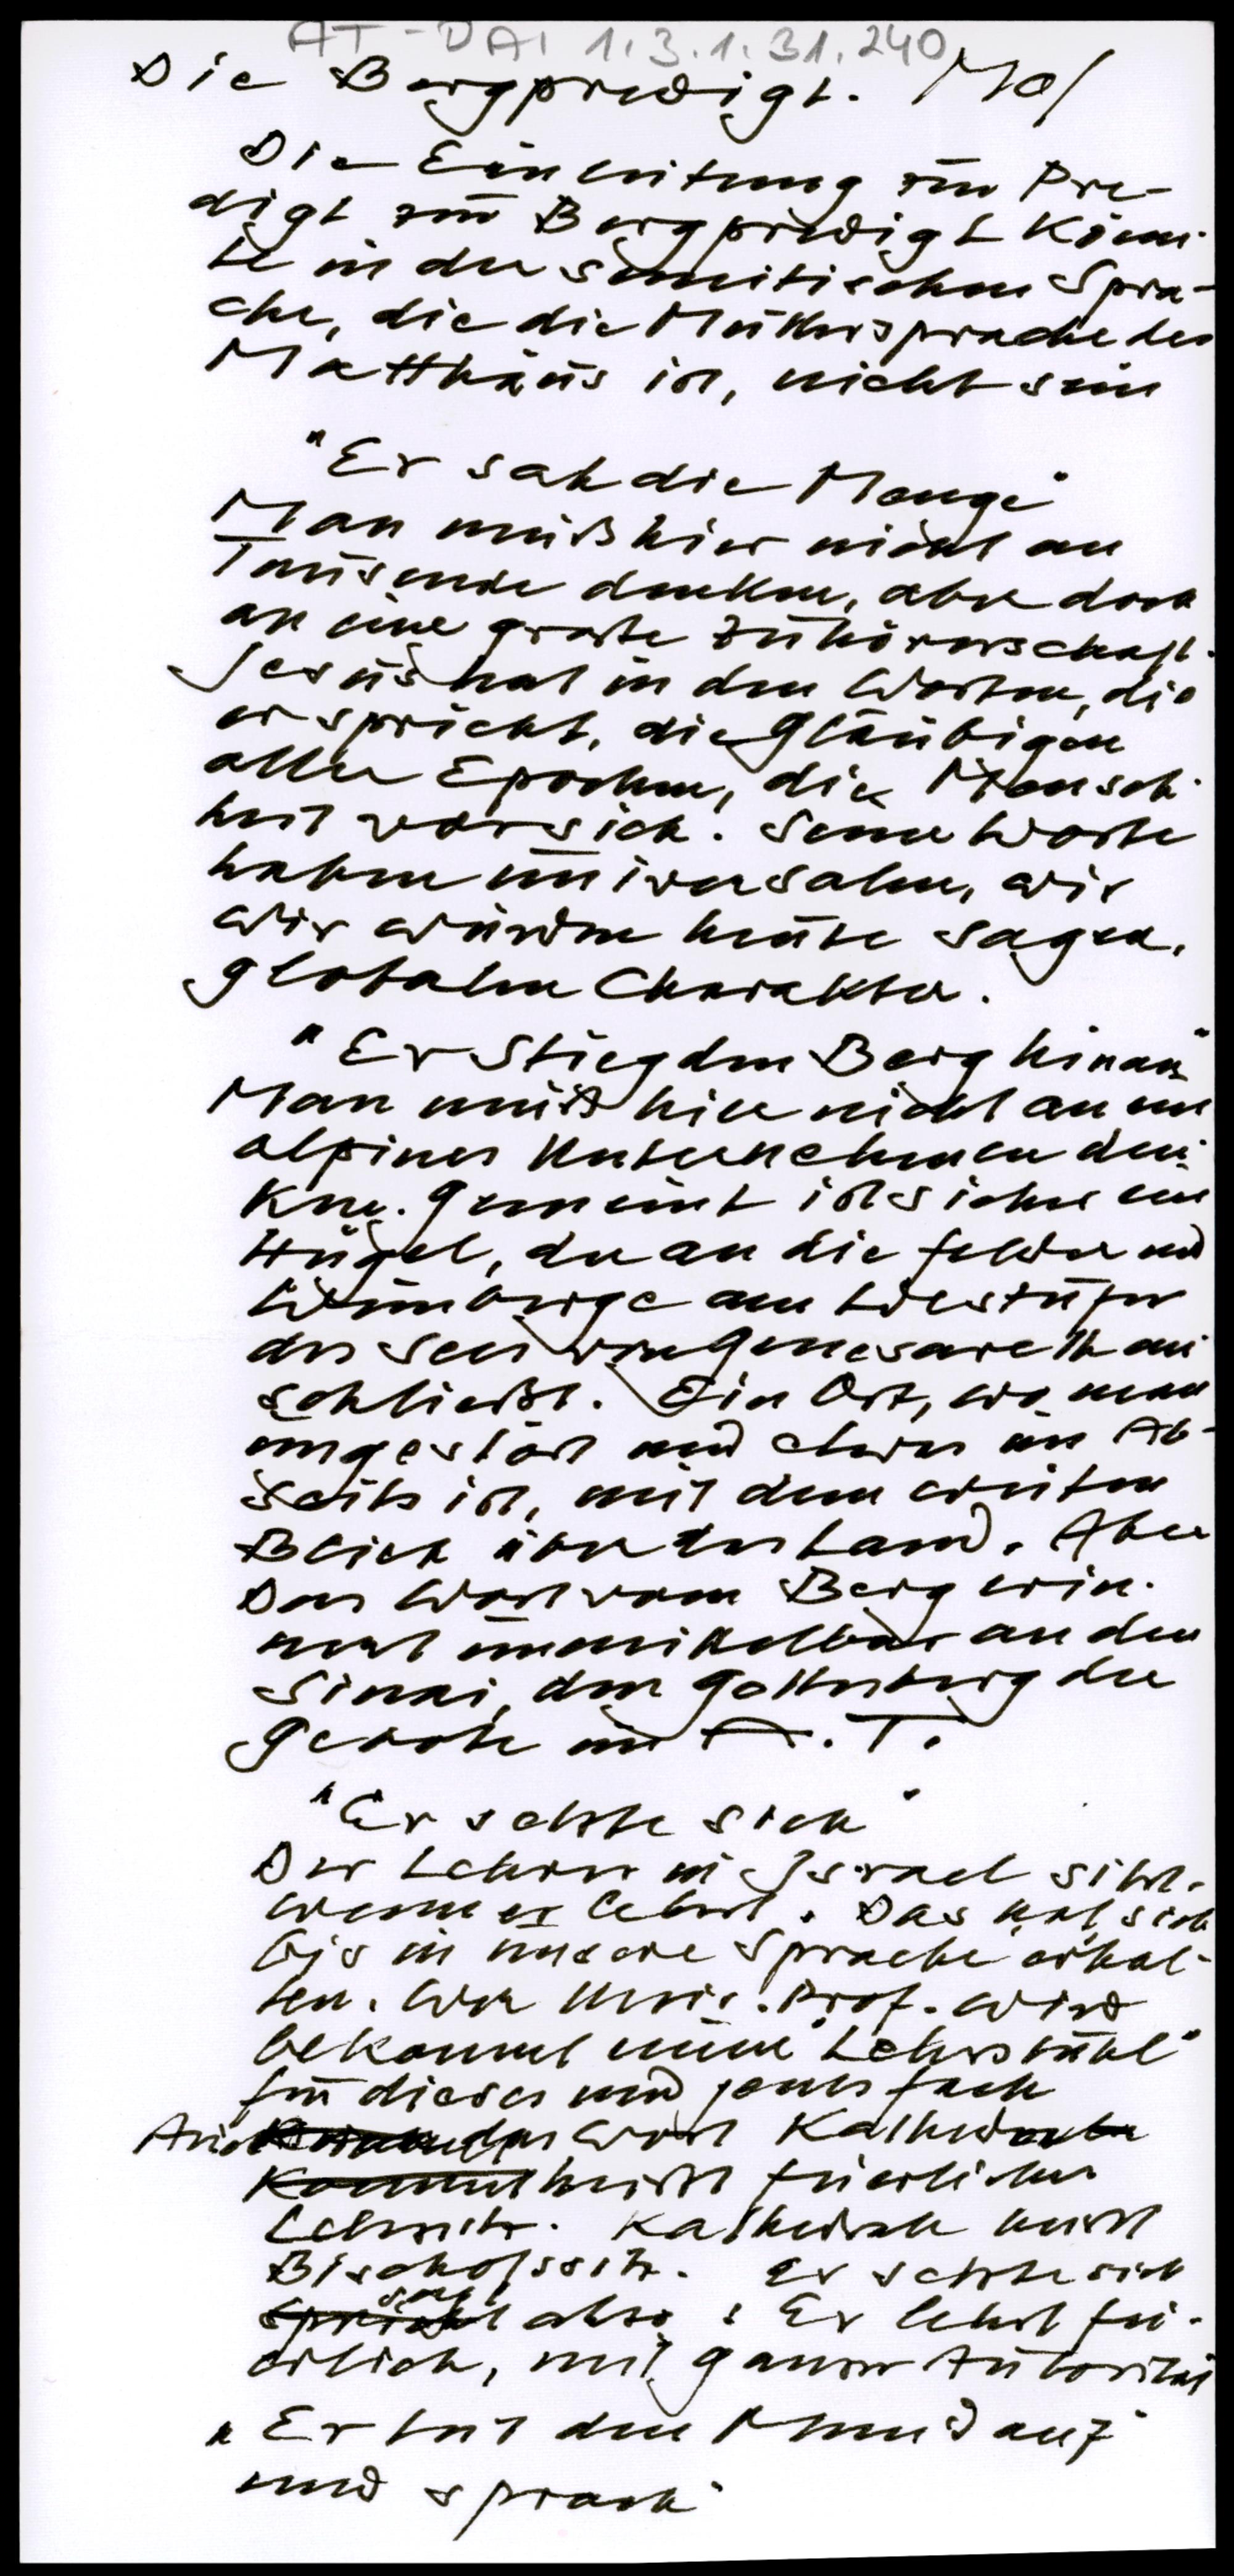 AT-DAI 1.3.1.31.240
Die Bergpredigt. 
Die Einleitung zur Pre-
digt zur Bergpredigt könn-
te in der semitischen Spra-
che, die die Muttersprache des
Matthäus ist, nicht sein
"Er sah die Menge"
Man muß hier nicht an
Tausende denken, aber doch
an eine große Zuhörerschaft.
Jesus hat in den Worten, die
er spricht, die Gläubigen
aller Epochen, die Mensch-
heit vor sich. Seine Worte
haben universalen, wir
wir würden heute sagen,
globalen Charakter.
"Er stieg den Berg hinauf"
Man muß hier nicht an ein
alpines Unternehmen den-
ken. Gemeint ist sicher ein
Hügel, der an die Felder und
Weinberge am Westufer
des Sees von Genesareth an-
schließt. Ein Ort, wo man
ungestört und etwas im Ab-
seits ist, mit dem weiten
Blick über das Land. Aber
Das Wort vom Berg erin-
nert unmittelbar an den
Sinai, den Gottesberg der
Gebote im A.T.
"Er setzte sich"
Der Lehrer in Israel sitzt,
wenn er lehrt. Das hat sich
bis in unsere Sprache erhal-
ten. Wer Univ. Prof. wird
bekommt einen "Lehrstuhl"
für dieses und jenes Fach
Auch das Wort Katheder
heißt feierlicher
Lehrsitz. Kathedrale heißt
Bischofssitz. Er setzte sich
sagt also: Er lehrt fei-
erlich, mit ganzer Autorität
"Er tat den Mund auf
und sprach"